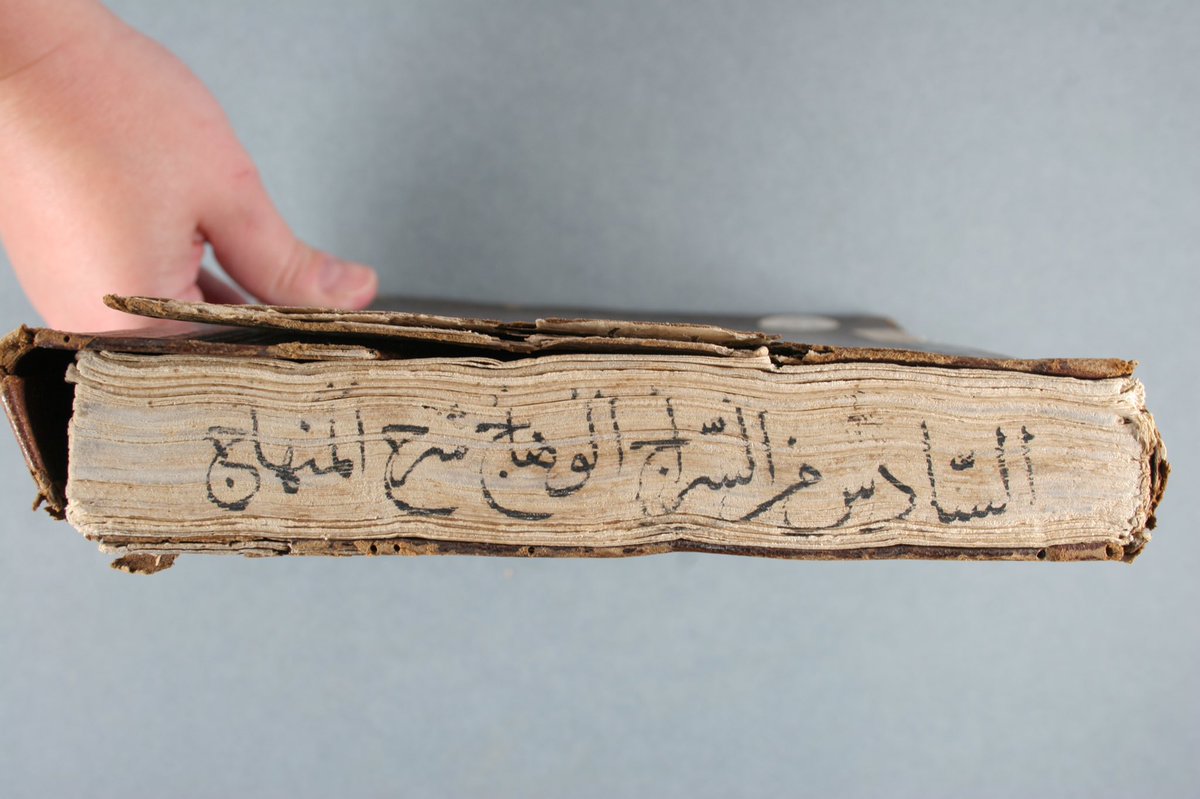 السادس من السراج الوهاج شرح المنهاج